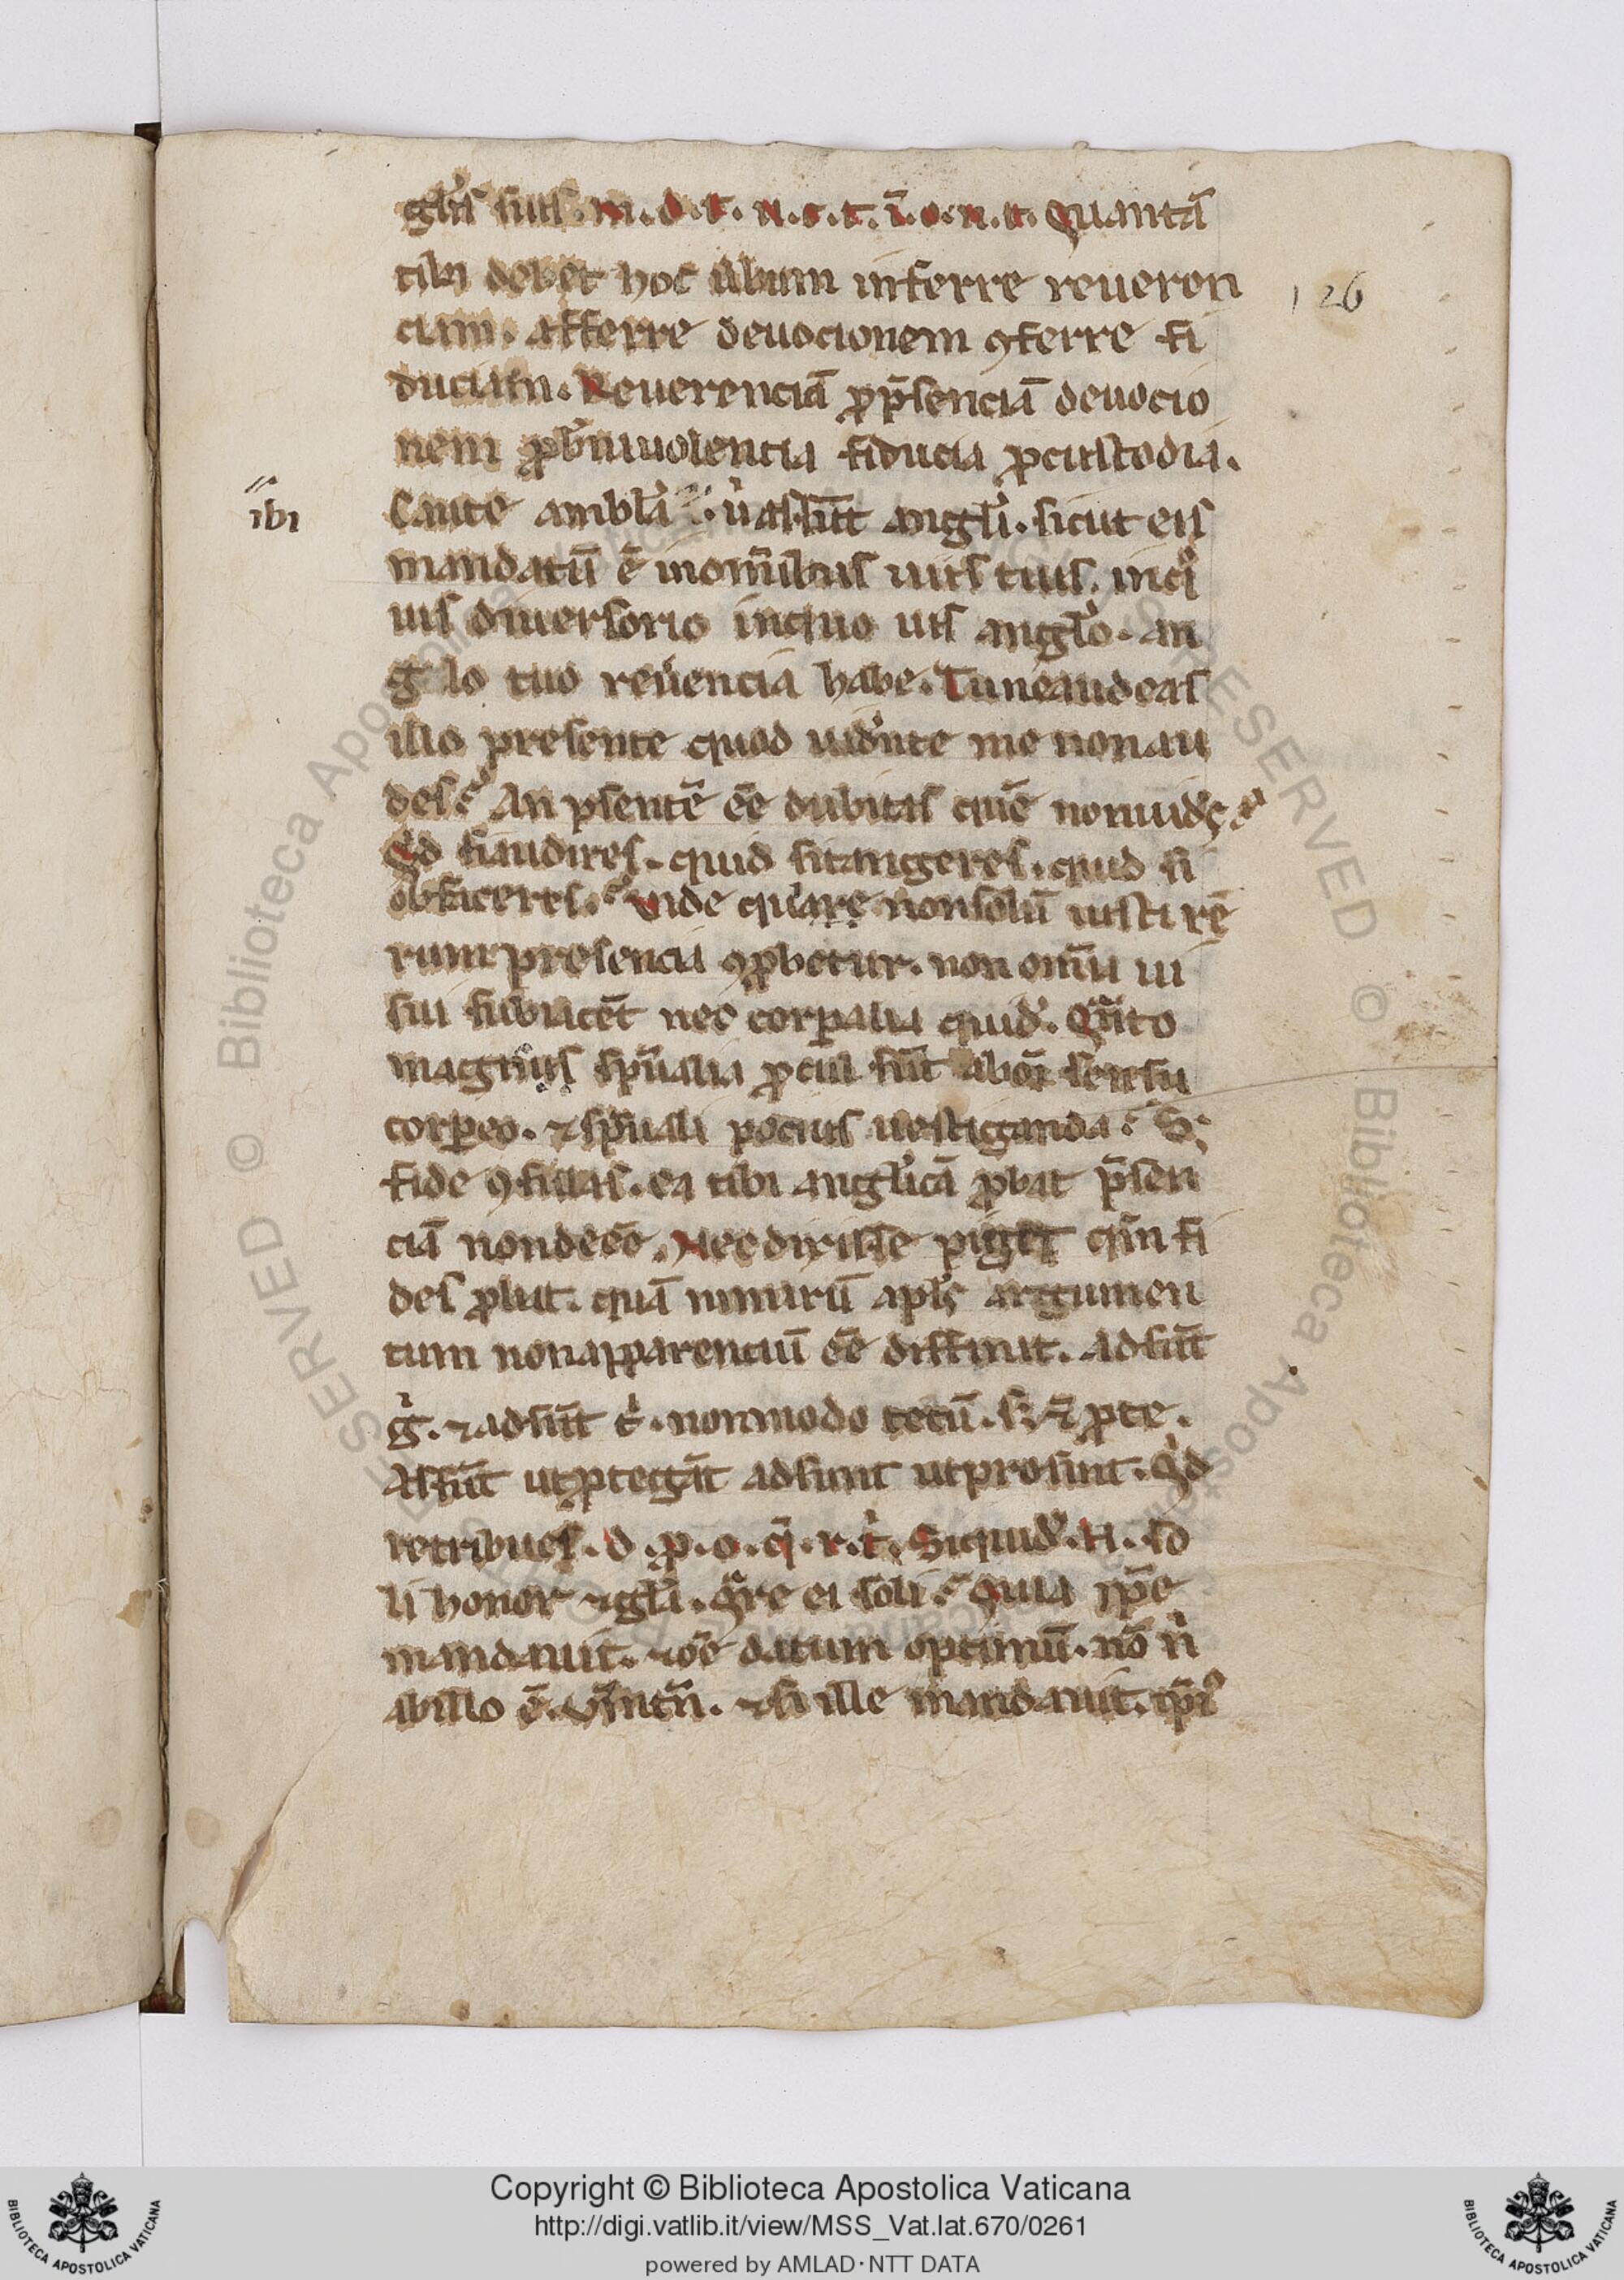 gl̅is suis. m. d. t. n. c. t. i̅. o. n. t. Quanta̅
tibi debet hoc ůbum inferre reueren
ciam. afferre deuocionem ꝯferre fi
duciam. Reuerencia̅ ꝓp̅senciā deuocio
nem ꝓb̅niuolencia fiducia ꝓcustodia.
ibi
Caute ambl̅a. ů assu̅t angl̅i. sicut eis
mandatu̅ e̅ inom̅ibus uiis tuis. inq̊
uis diuersorio inquo uis anglo̊. an
g lo tuo reůencia habe. Tuneaudeas
illo presente quod uide̅te me nonau
des. An p̅sente̅ ee̅ dubitas que̅ nonuides.
Qͥd siaudires. quid sitangeres. quid si
olfaceres. Vide quare nonsolu̅ uisu re
rum presencia ꝯꝓbetur. non omi̅a ui
sui subiace̅t nec corꝑalia quid̾. Qͣnto
magis sp̅ualia ꝓcul su̅t abom̅i sensu
corꝑeo. ⁊ sp̅uali pocius uestiganda. S;
fide ꝯsulas. ea tibi angl̅ica̅ ꝓbat p̅sen
cia̅ nondee̅e. Necdixisse piget qm̅ fi
des ꝓbat. qua̅ nimiru̅ apl̅s argumen
tum nonapparenciu̅ ee̅ diffinit. Adsu̅t
g̊. ⁊ adsu̅t tͥ. nonmodo tecu̅. s; ⁊ ꝓte.
Assu̅t utꝓtega̅t adsunt utprosint. Qͥd
retribues. d. ꝓ. o. q̅. r. tͥ. Siquid̾. ei. so
li honor ⁊ gl̅a. Qͣre ei soli. Quia ip̅e
mandauit. ⁊ oe̅ datum optimu̅. no̅ nͥ
abillo e̅. Veͬmtn̅. ⁊ si ille mandauit. ip̅is
126
Copyright © Biblioteca Apostolica Vaticana
http://digi.vatlib.it/view/MSS_Vat.lat.670/0261
powered by AMLAD·NTT DATA
BIBLIOTECA APOSTOLICA VATICANA
BIBLIOTECA APOSTOLICA VATICANA